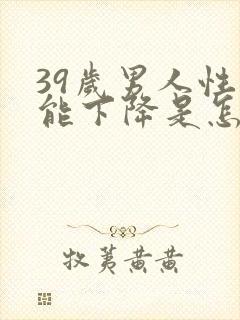 39歲男人性
能下降是怎
牧荑黄黄